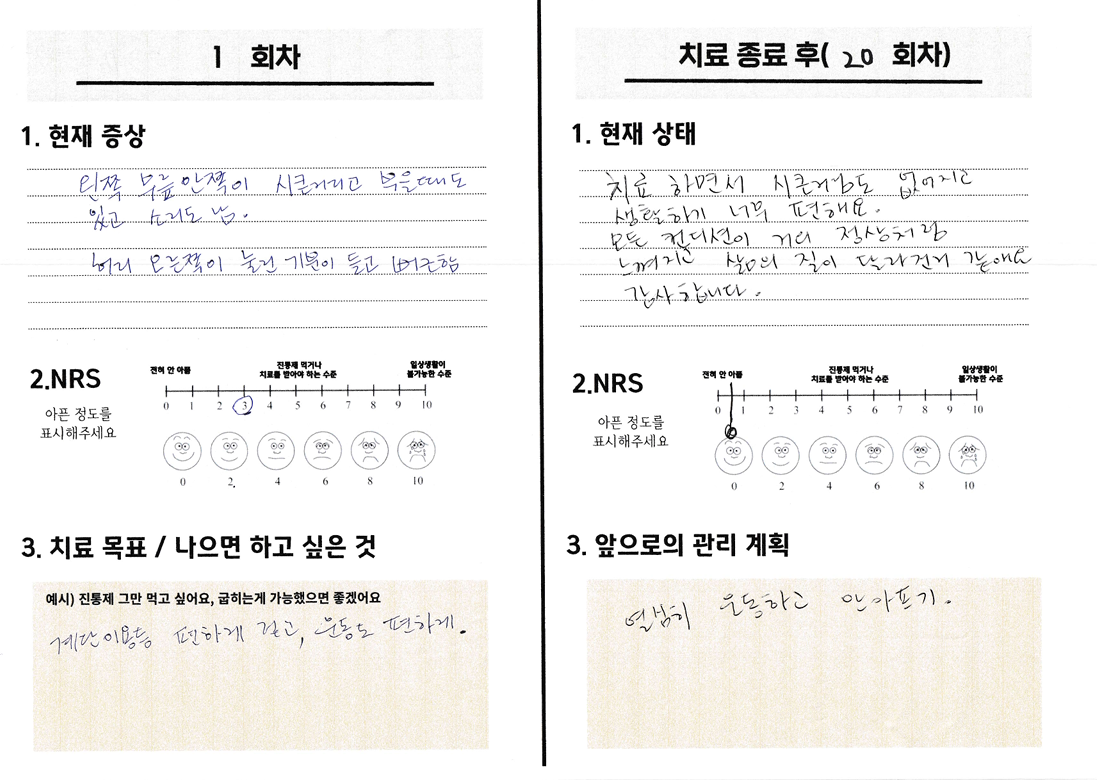 1 회차
1. 현재 증상
왼쪽 무릎 안쪽이 시큰거리고 부을때도
있고 소리도 남.
허리 오른쪽이 눌린 기분이 들고 뻐근함
2.NRS
아픈 정도를
표시해주세요
전혀 안 아픔
진통제 먹거나
치료를 받아야 하는 수준
일상생활이
불가능한 수준
0 1 2 3 4 5 6 7 8 9 10
0 2 4 6 8 10
3. 치료 목표 / 나으면 하고 싶은 것
예시) 진통제 그만 먹고 싶어요, 굽히는게 가능했으면 좋겠어요
계단이용등 편하게 걷고, 운동도 편하게.
치료 종료 후( 20 회차)
1. 현재 상태
치료 하면서 시큰거림도 없어지고
생활하기 너무 편해요.
모든 컨디션이 거의 정상처럼
느껴지고 삶의 질이 달라진거 같애요
감사합니다.
2.NRS
아픈 정도를
표시해주세요
전혀 안 아픔
진통제 먹거나
치료를 받아야 하는 수준
일상생활이
불가능한 수준
0 1 2 3 4 5 6 7 8 9 10
0 2 4 6 8 10
3. 앞으로의 관리 계획
열심히 운동하고 안아프기.